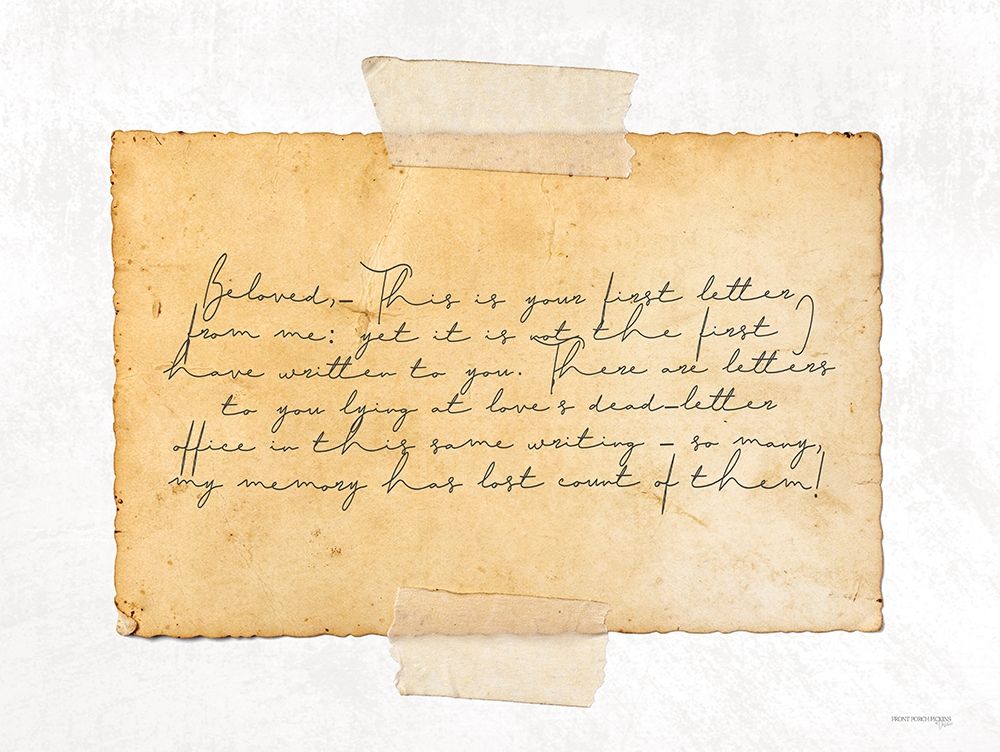 Beloved,– This is your first letter
from me: yet it is not the first I
have written to you. There are letters
to you lying at love's dead-letter
office in this same writing – so many,
my memory has lost count of them!
FRONT PORCH PICKINS